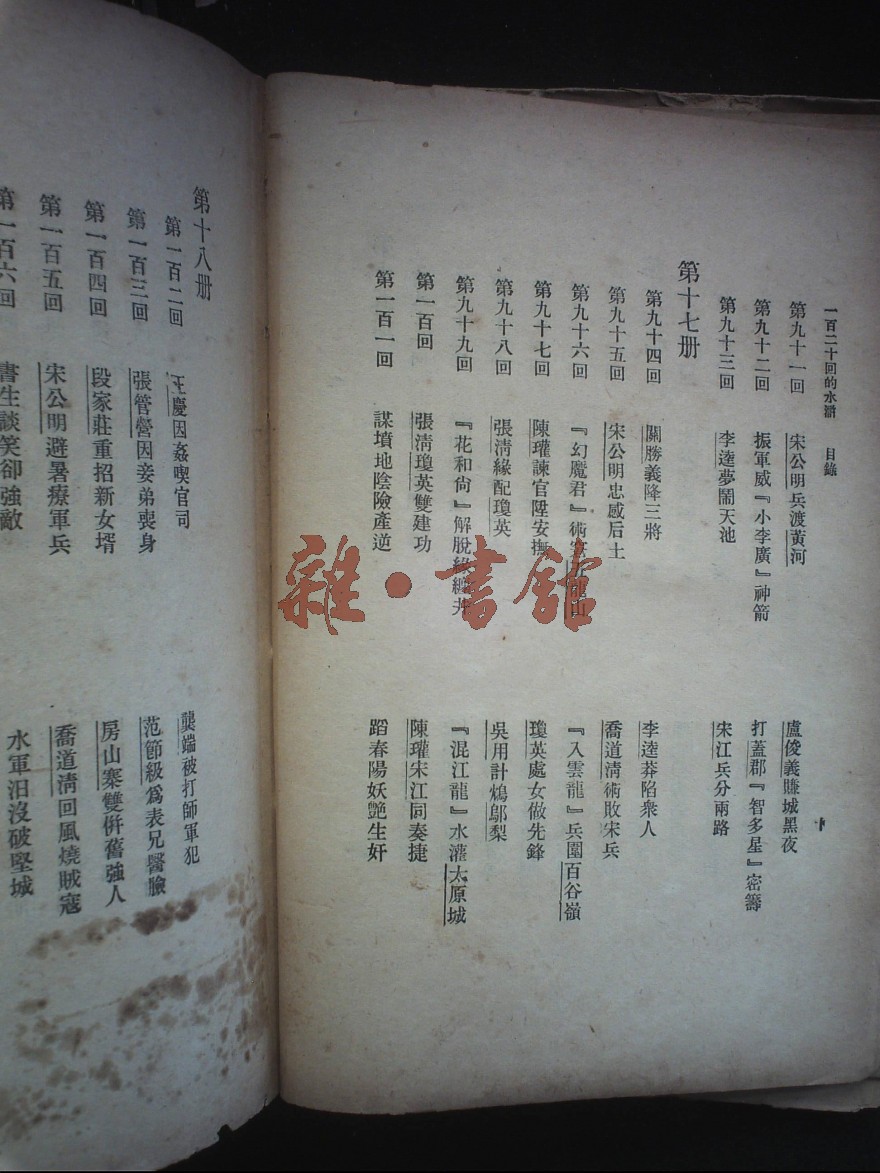 一百二十回的水滸 目錄
第九十一回 宋公明兵渡黃河 盧俊義賺城黑夜
第九十二回 振軍威『小李廣』神箭 打蓋郡『智多星』密籌
第九十三回 李逵夢鬧天池 宋江兵分兩路
第十七册
第九十四回 關勝義降三將 李逵莽陷衆人
第九十五回 宋公明忠感后土 喬道清術敗宋兵
第九十六回 『幻魔君』術窘五龍山 『入雲龍』兵圍百谷嶺
第九十七回 陳瓘諫官陞安撫 瓊英處女做先鋒
第九十八回 張淸緣配瓊英 吳用計鴆鄔梨
第九十九回 『花和尙』解脫緣纏井 『混江龍』水灌太原城
第一百回 張淸瓊英雙建功 陳瓘宋江同奏捷
第一百一回 謀墳地陰險產逆 蹈春陽妖艷生奸
第十八册
第一百二回 王慶因姦喫官司 龔端被打師軍犯
第一百三回 張管營因妾弟喪身 范節級爲表兄醫臉
第一百四回 段家莊重招新女壻 房山寨雙倂舊強人
第一百五回 宋公明避暑療軍兵 喬道淸回風燒賊寇
第一百六回 書生談笑卻強敵 水軍汨沒破堅城
雜·書館